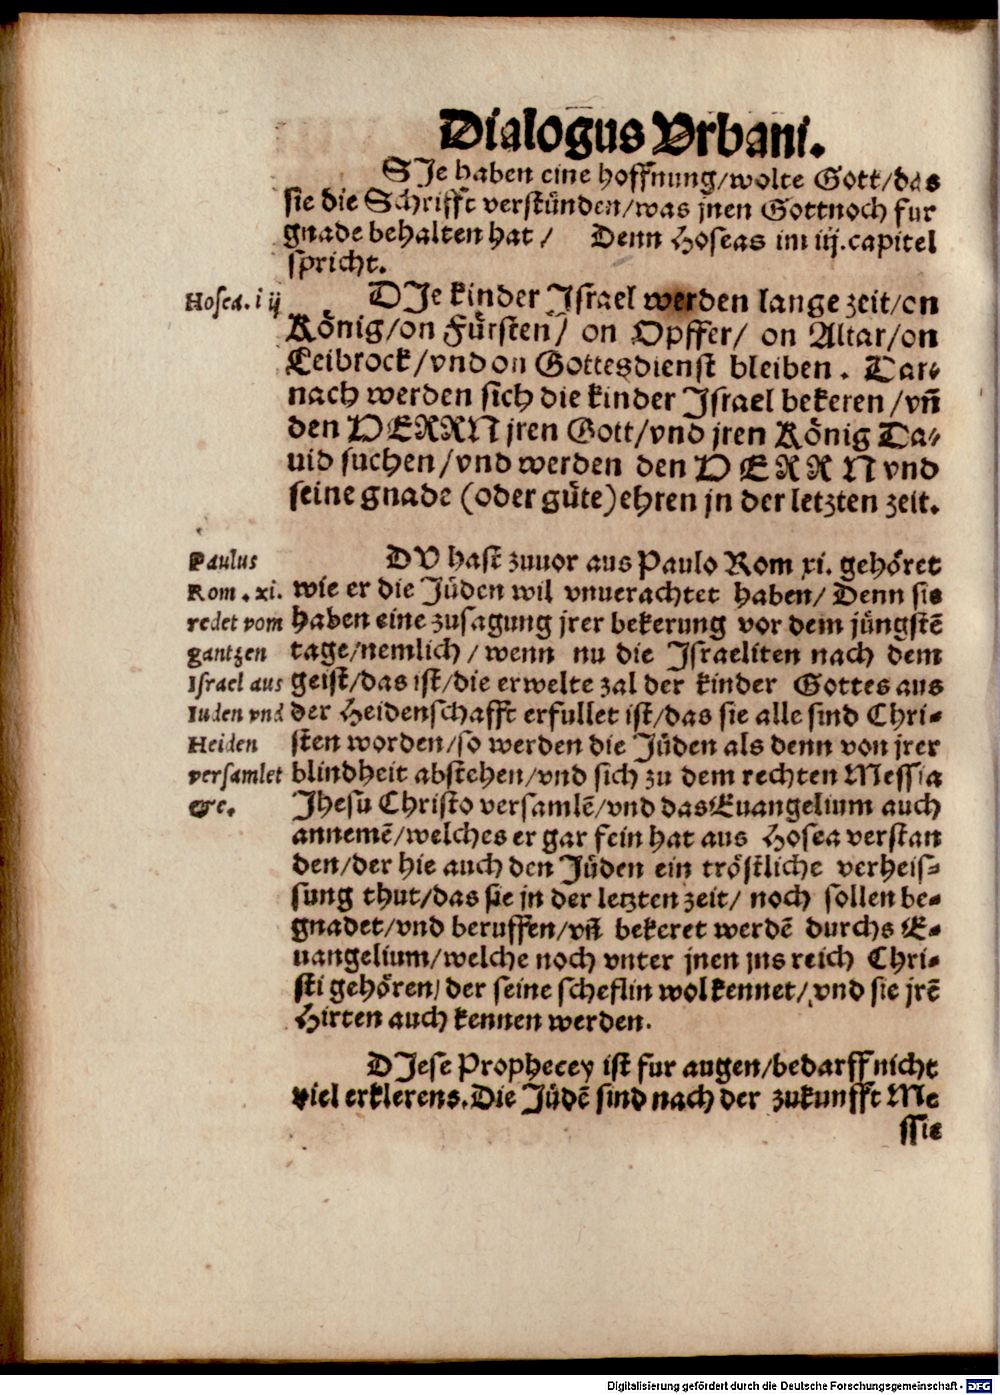 Dialogus Vrbani.
SJe haben eine hoffnung/wolte Gott/das
sie die Schrifft verstünden/was jnen Gottnoch fur
gnade behalten hat / Denn Hoseas im iij.capitel
spricht.
Hosea. iij
DJe kinder Jsrael werden lange zeit/on
König/on Fürsten/ on Opffer/ on Altar/on
Leibrock/vnd on Gottesdienst bleiben. Dar⸗
nach werden sich die kinder Jsrael bekeren/vñ
den HERRN jren Gott/vnd jren König Da⸗
uid suchen/vnd werden den HERRN vnd
seine gnade (oder güte)ehren jn der letzten zeit.
Paulus
Rom. xi.
redet vom
gantzen
Israel aus
Iuden vnd
Heiden
versamlet
&c.
DV hast zuuor aus Paulo Rom xi. gehöret
wie er die Jüden wil vnuerachtet haben/ Denn sie
haben eine zusagung jrer bekerung vor dem jüngstē
tage/nemlich/wenn nu die Jsraeliten nach dem
geist/das ist/die erwelte zal der kinder Gottes aus
der Heidenschafft erfullet ist/das sie alle sind Chri⸗
sten worden/so werden die Jüden als denn von jrer
blindheit abstehen/vnd sich zu dem rechten Messia
Jhesu Christo versamlē/vnd das Euangelium auch
annemē/welches er gar fein hat aus Hosea verstan
den/der hie auch den Jüden ein tröstliche verheis⸗
sung thut/das sie jn der letzten zeit/ noch sollen be⸗
gnadet/vnd beruffen/vñ bekeret werdē durchs E⸗
uangelium/welche noch vnter jnen jns reich Chri⸗
sti gehören/der seine scheflin wol kennet/vnd sie jrē
Hirten auch kennen werden.
DJese Prophecey ist fur augen/bedarff nicht
viel erklerens.Die Jüdē sind nach der zukunfft Me
ssie
Digitalisierung gefördert durch die Deutsche Forschungsgemeinschaft - DFG